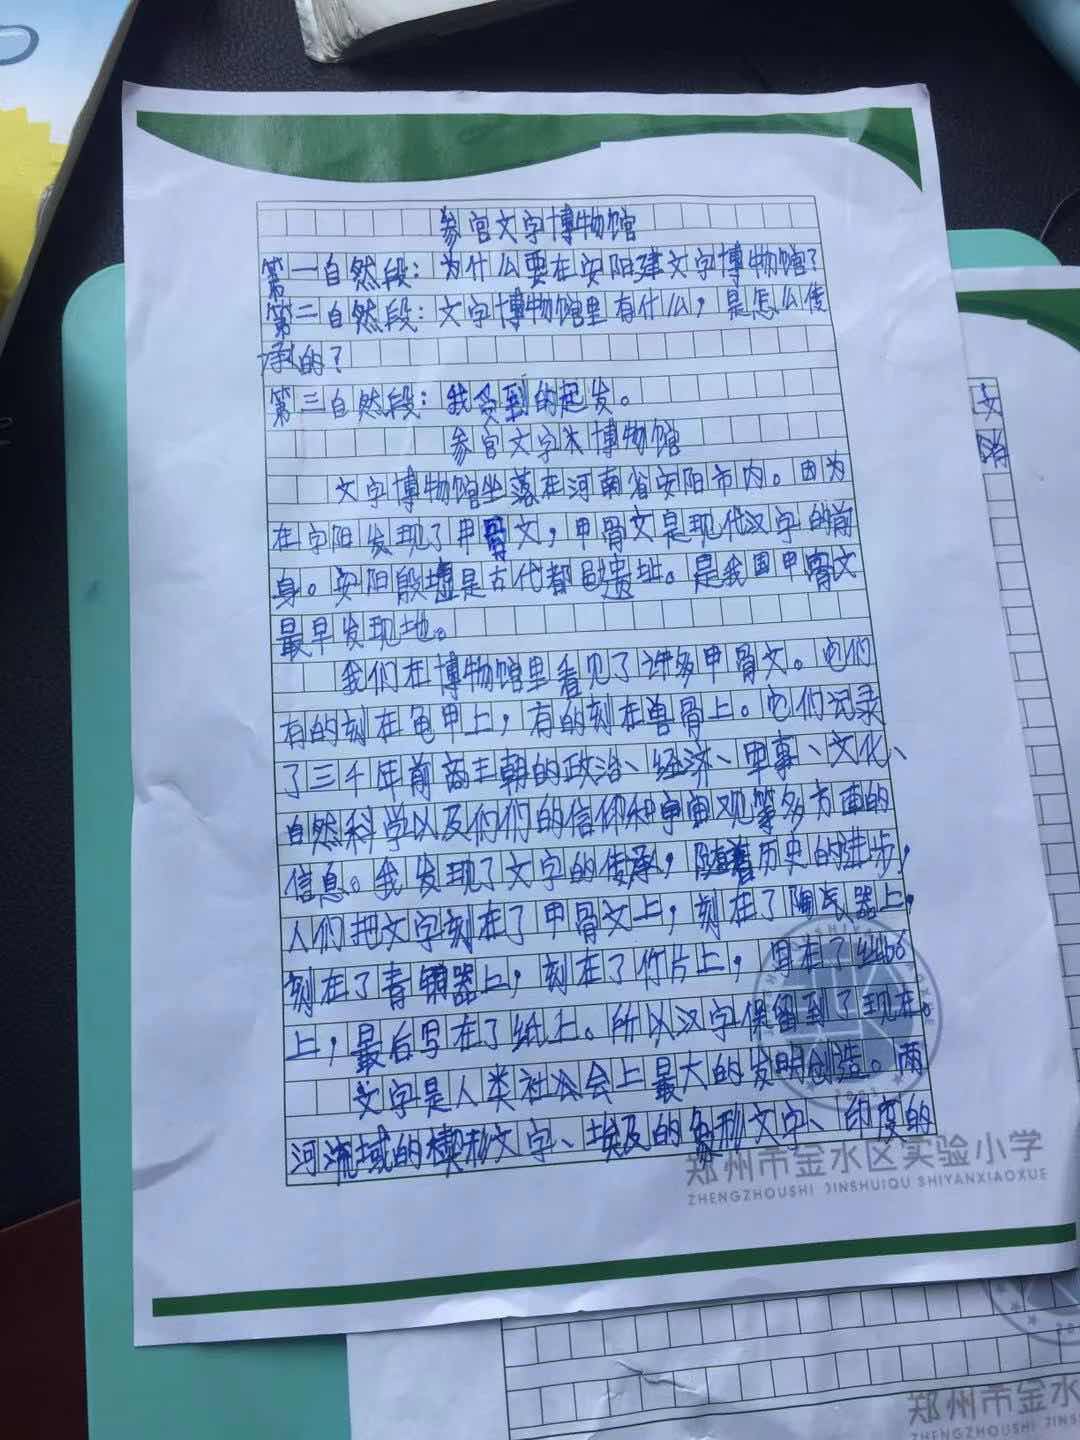 参官文字博物馆
第一自然段：为什么要在安阳建文字博物馆？
第二自然段：文字博物馆里有什么，是怎么传
承的？
第三自然段：我受到的起发。
参官文字博物馆
文字博物馆坐落在河南省安阳市内。因为
在安阳发现了甲骨文，甲骨文是现代汉字的前
身。安阳殷墟是古代都邑遗址。是我国甲骨文
最早发现地。
我们在博物馆里看见了许多甲骨文。它们
有的刻在龟甲上，有的刻在兽骨上。它们记录
了三千年前商王朝的政治、经济、军事、文化、
自然科学以及们们的信仰和宇宙观等多方面的
信息。我发现了文字的传承，随着历史的进步，
人们把文字刻在了甲骨文上，刻在了陶瓦器上，
刻在了青铜器上，刻在了竹片上，写在了丝帛
上，最后写在了纸上。所以汉字保留到了现在。
文字是人类社会上最大的发明创造。两
河流域的楔形文字、埃及的象形文字、印度的
郑州市金水区实验小学
ZHENGZHOUSHI JINSHUIQU SHIYANXIAOXUE
郑州市金水
ZHENGZHOUSHI JINS